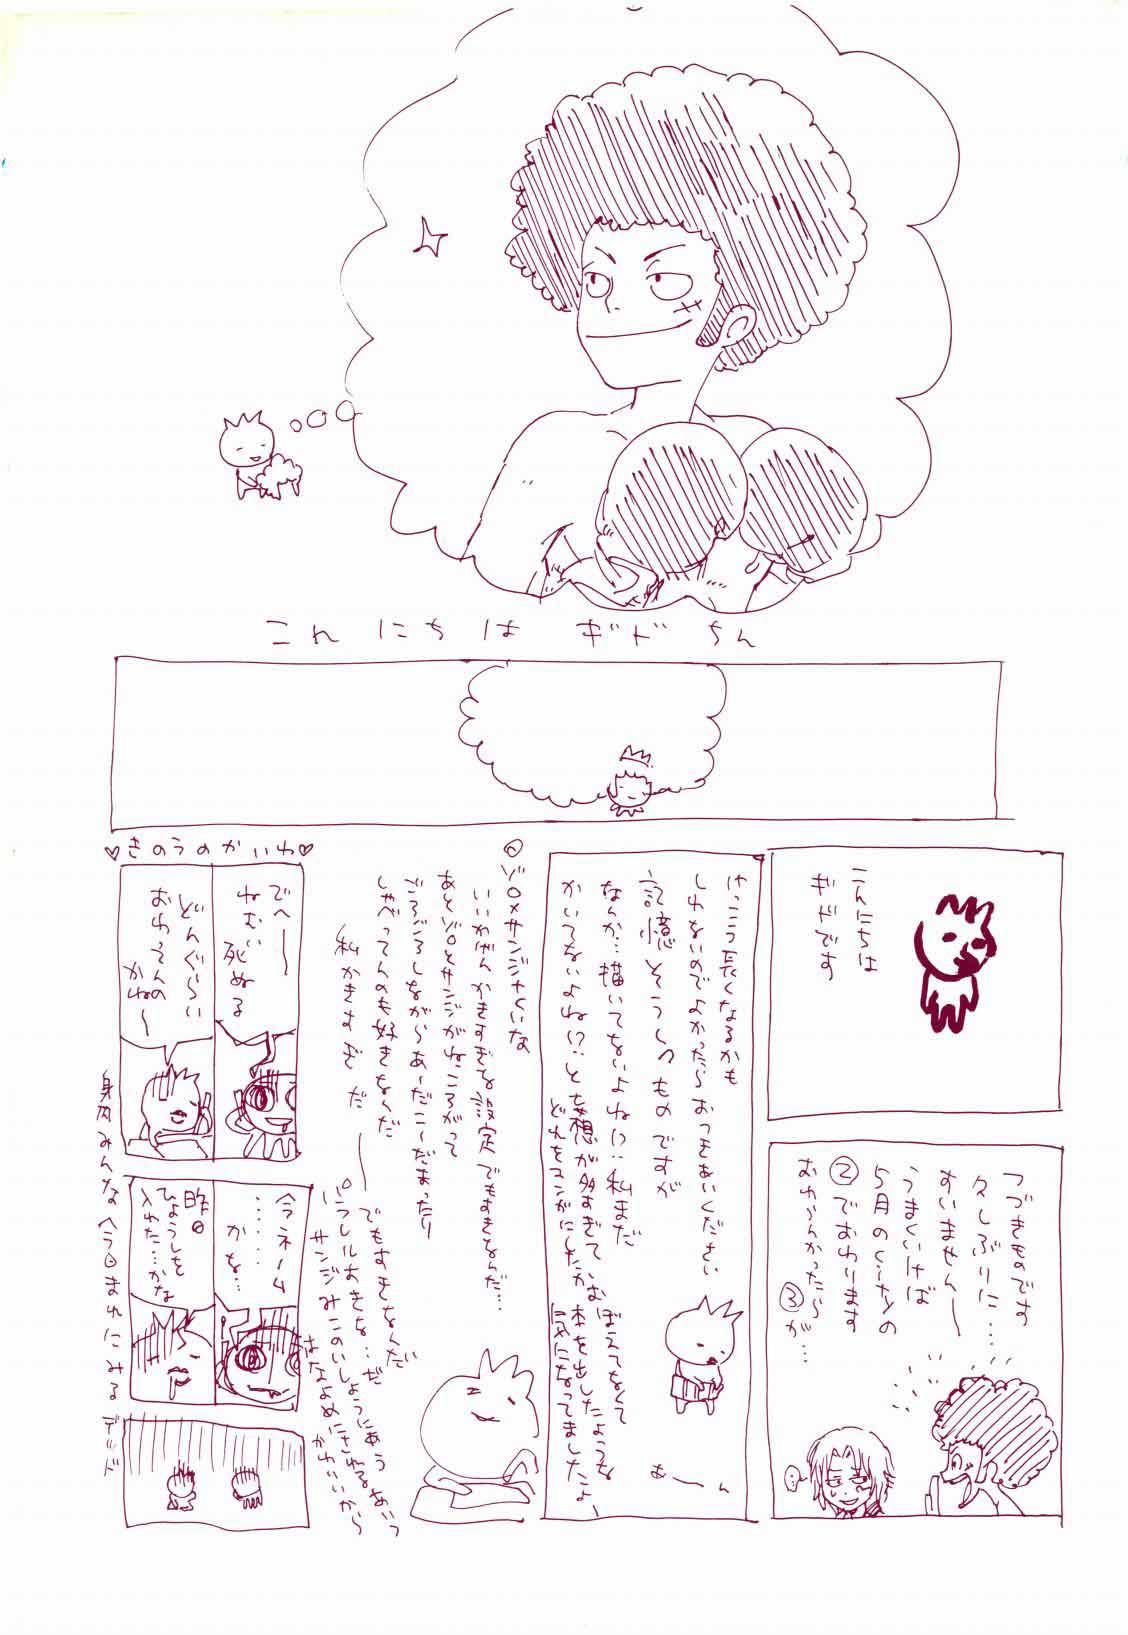 こんにちは ギドちん
こんにちは
ギドです
つづきものです
久しぶりに…
すいませんー
うまくいけば
5月の
②でおわります
おわらんかったら
③が…
けっこう長くなるかも
しれないのでよかったら おつきあいください
記憶そうしつものですが
なんか…描いてないよね!?私まだ
かいてないよね!?…と妄想が多すぎて
どれをマンガにしたかおぼえてなくて
本を出したような
気になってましたよ
あーん
ゾロ×サンジ
いいかげんかきすぎな設定でもすきなんだ…
あとゾロとサンジがねころがって
ごろごろしながらあーだこーだまったり
しゃべってんのも好きなんだ
私かきすぎだー
でもすきなんだ
パラレルおきな…だ
かわいいから
♡きのうのかいわ♡
でへ〜
ねむい
死ぬる
どんぐらい
おわってんの
かね〜
今ネーム
……かな…
昨日
ひょうしを
入れた…かな
身内みんな今回まれにみるデッド